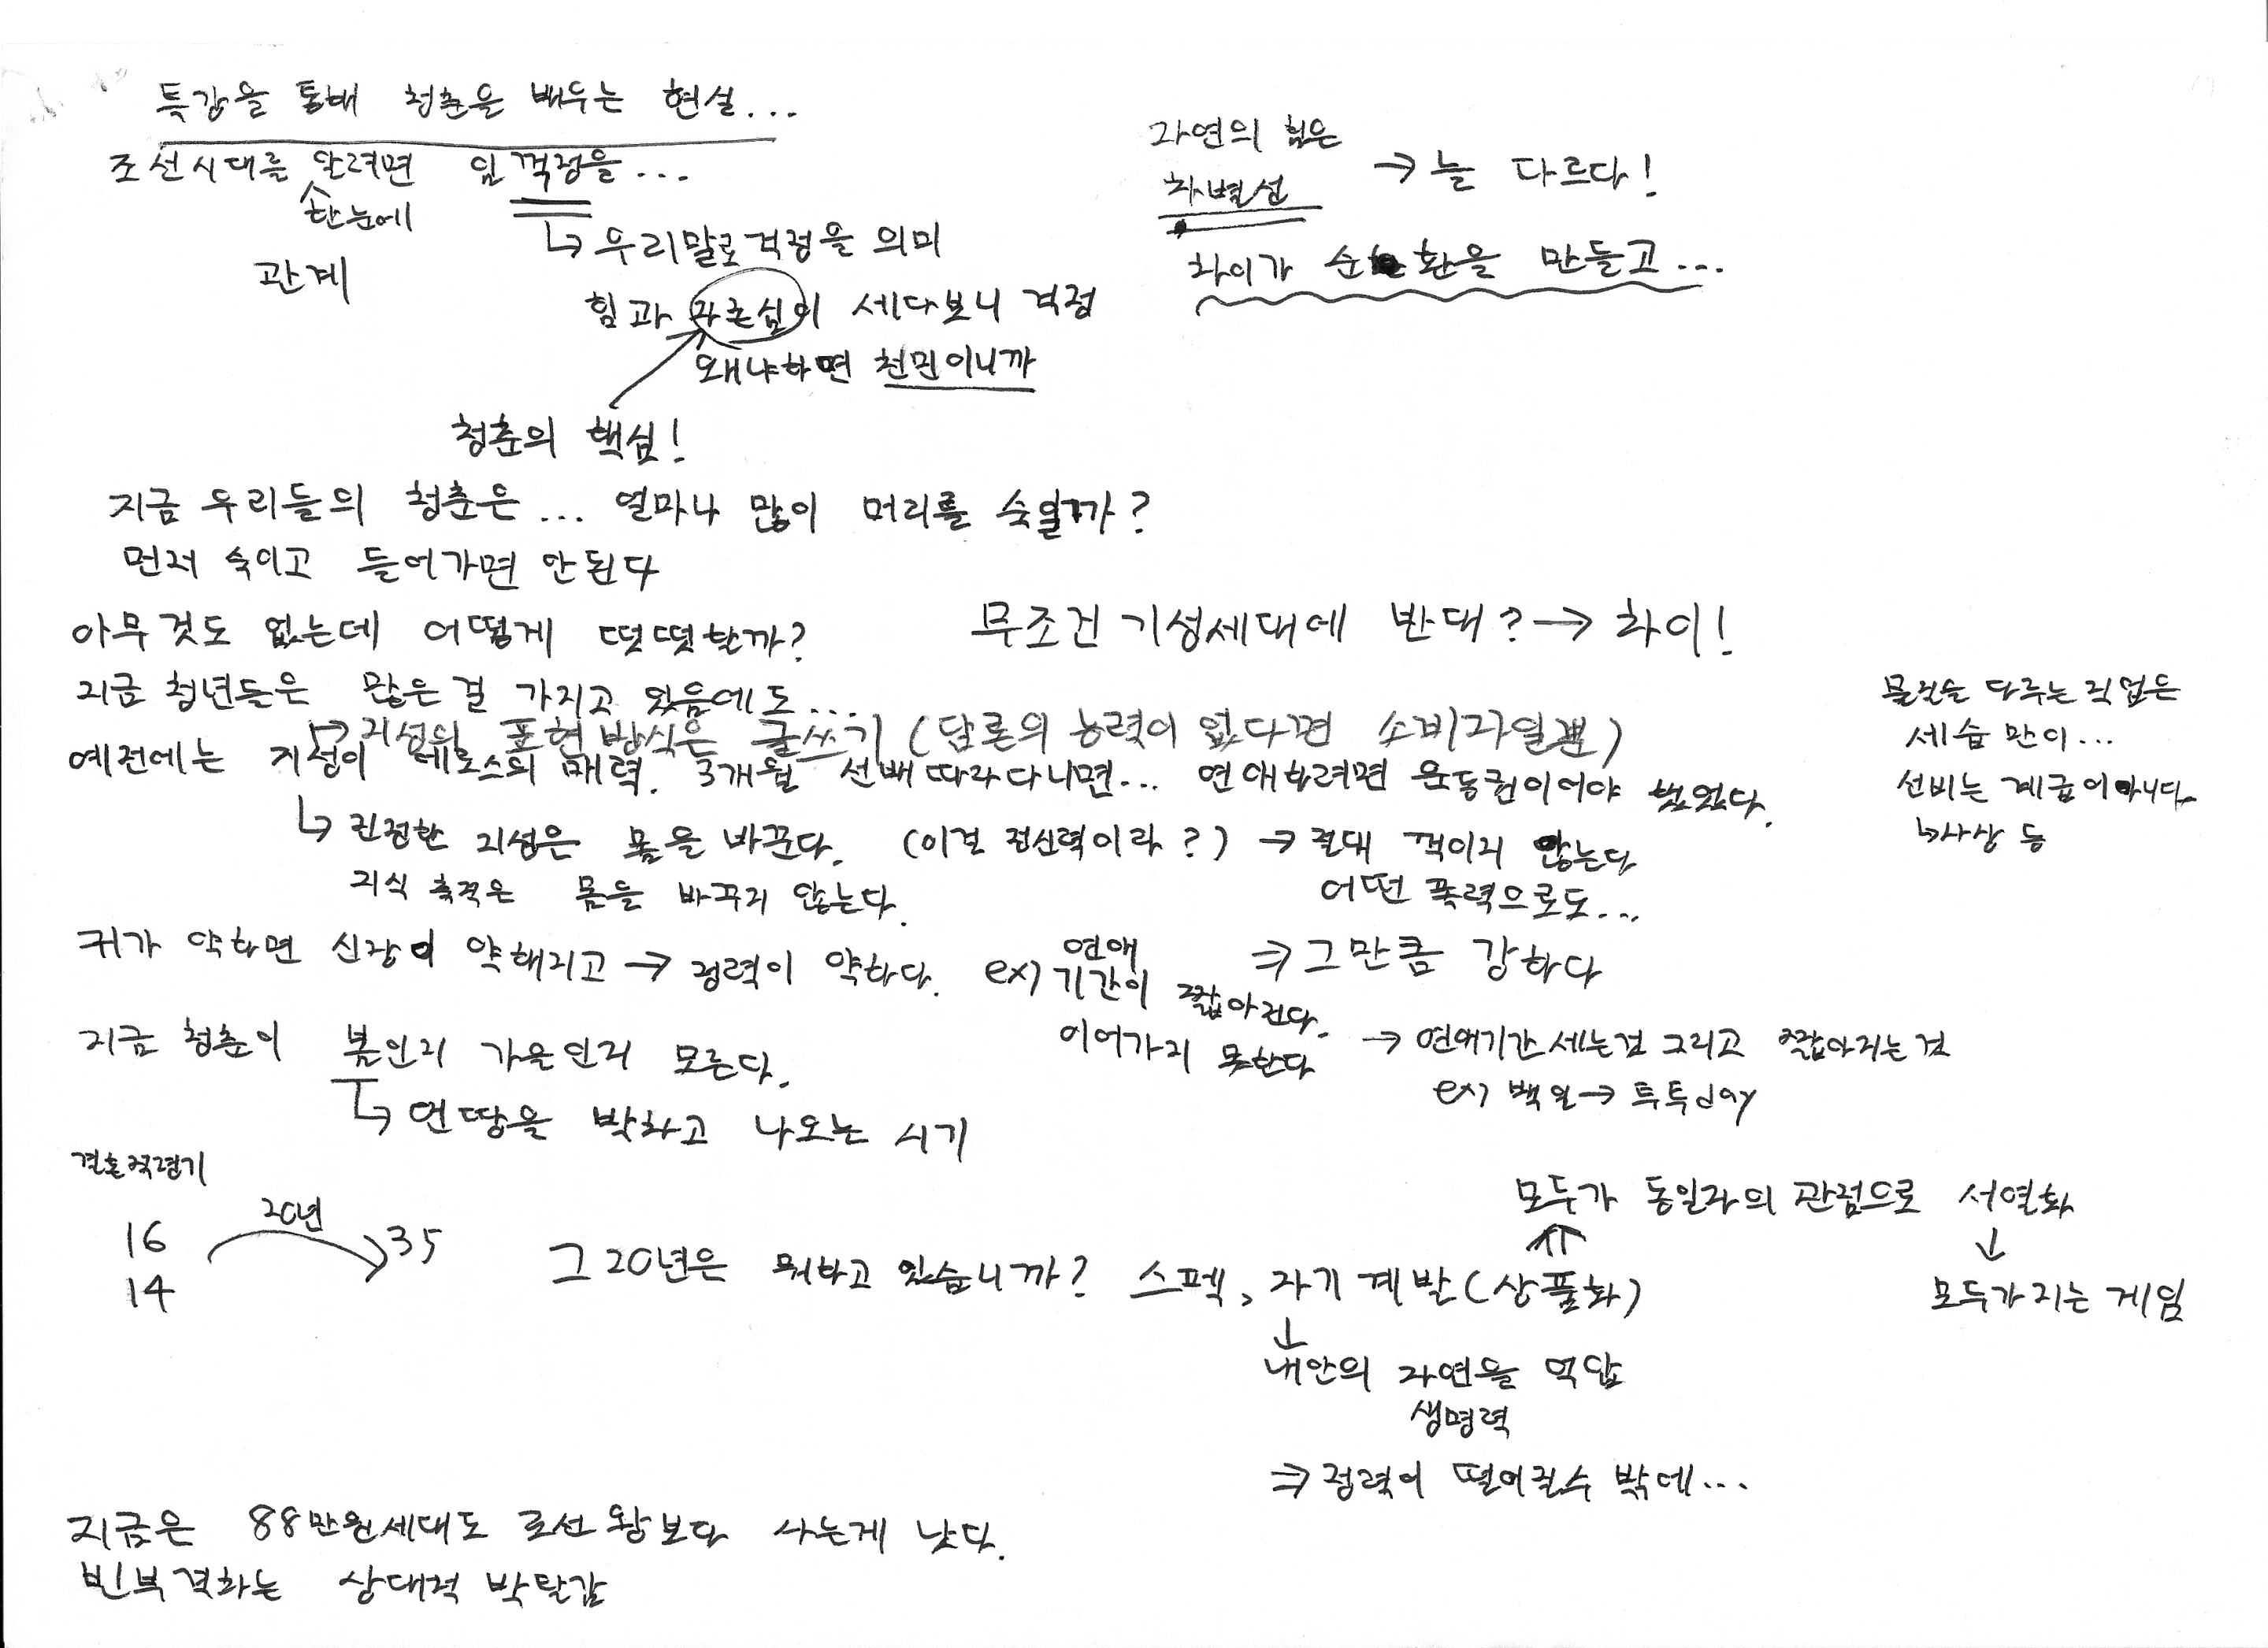 특강을 통해 청춘을 배우는 현실...
조선시대를 알려면 임꺽정을...
한눈에
↳ 우리말로 걱정을 의미
관계
힘과 자존심이 세다보니 걱정
왜냐하면 천민이니까
청춘의 핵심!
자연의 힘은
차별선
→ 늘 다르다!
차이가 순환을 만들고...
지금 우리들의 청춘은... 얼마나 많이 머리를 숙일까?
먼저 숙이고 들어가면 안된다
아무것도 없는데 어떻게 떳떳할까?
무조건 기성세대에 반대? → 차이!
지금 청년들은 많은걸 가지고 있음에도...
↳ 지성의 표현방식은 글쓰기 (담론의 능력이 없다면 소비자일뿐)
예전에는 지성이 에로스의 매력. 3개월 선배 따라다니면... 연애하려면 운동권이어야 했었다.
↳ 진정한 지성은 몸을 바꾼다. (이걸 정신력이라?) → 절대 꺽이지 않는다
지식 축적은 몸을 바꾸지 않는다.
어떤 폭력으로도...
⇒ 그만큼 강하다
물건을 다루는 직업은
세습 만이...
선비는 계급이 아니다
↳ 사상 등
귀가 약하면 신장이 약해지고 → 정력이 약하다. ex) 연애
기간이 짧아진다.
이어가지 못한다
→ 연애기간 세는것 그리고 짧아지는것
ex) 백일 → 투투day
지금 청춘이 봄인지 가을인지 모른다.
↳ 언땅을 박차고 나오는 시기
결혼적령기
16
14
20년
35
그 20년은 뭐하고 있습니까? 스펙, 자기계발(상품화)
모두가 동일자의 관점으로 서열화
↓
모두가 지는 게임
↓
내안의 자연을 억압
생명력
⇒ 정력이 떨어질수 밖에...
지금은 88만원세대도 조선 왕보다 사는게 낫다.
빈부격차는 상대적 박탈감